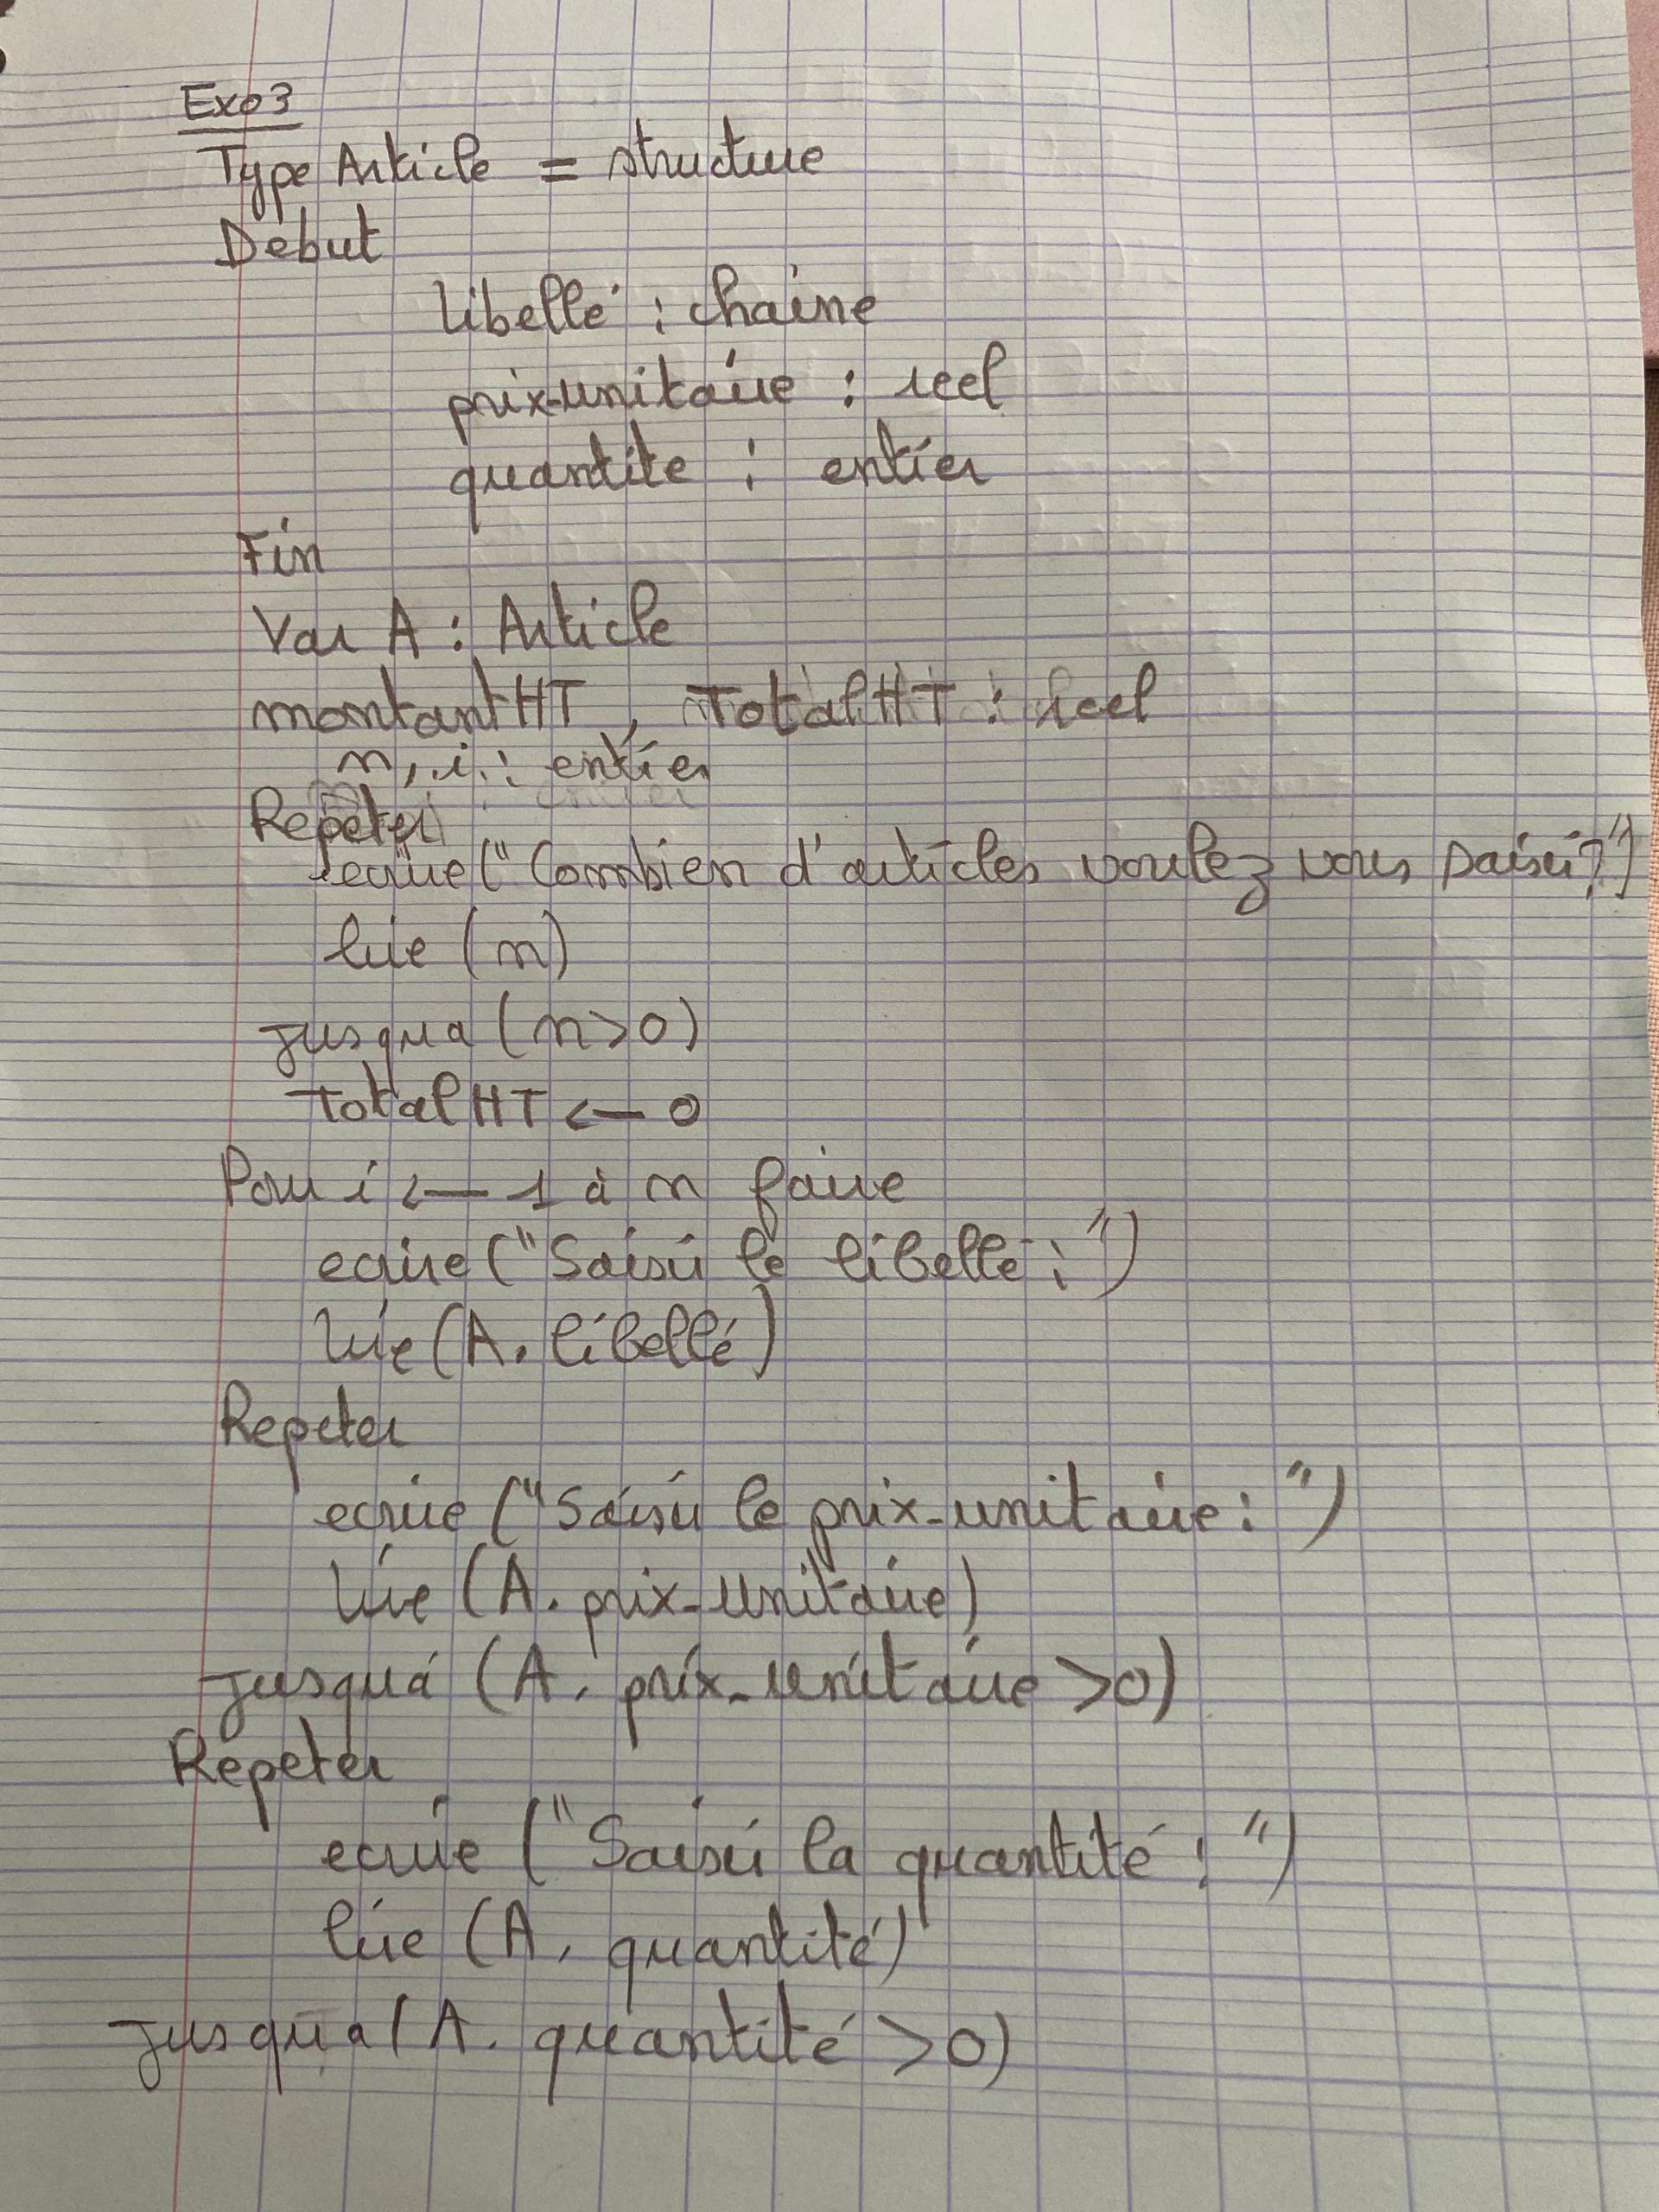 Exo3
Type Article = structure
Debut
libellé : chaine
prix-unitaire : reel
quantite : entier
Fin
Var A : Article
montantHT, TotalHT : reel
n, i : entier
Repeter
ecrire ("Combien d'articles voulez vous saisir?")
lire (n)
jusqua (n>0)
TotalHT <— 0
Pour i <— 1 à n faire
ecrire ("Saisir le libellé : ")
lire (A. libellé)
Repeter
ecrire ("Saisir le prix-unitaire : ")
lire (A. prix-unitaire)
jusquá (A. prix-unitaire >0)
Repeter
ecrire ("Saisir la quantité : ")
lire (A. quantité)
jusqua (A. quantité >0)